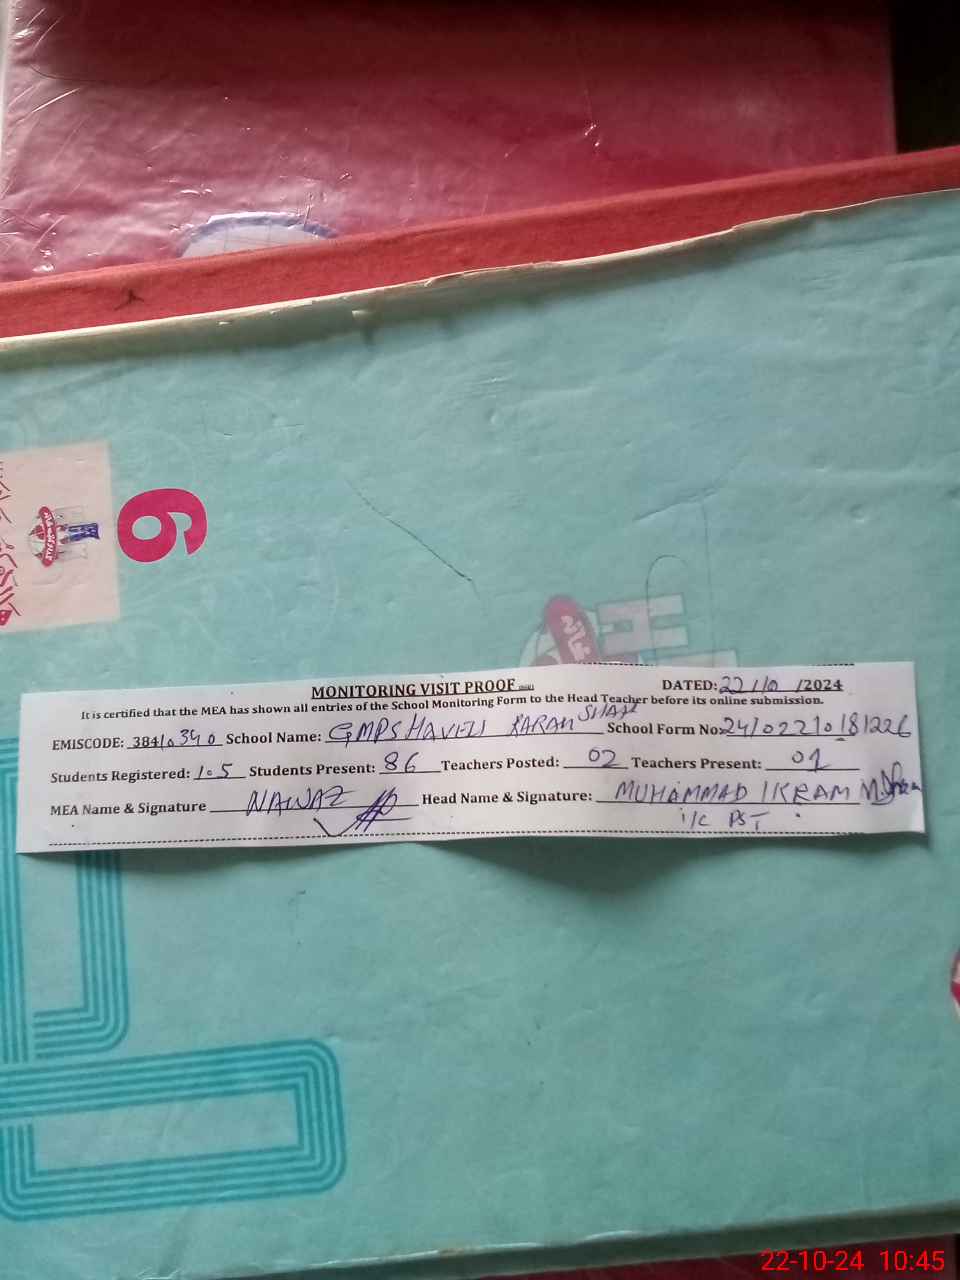 6
MONITORING VISIT PROOF DATED: 22/10/2024
It is certified that the MEA has shown all entries of the School Monitoring Form to the Head Teacher before its online submission.
EMISCODE: 38410340 School Name: GMPS HAVELI KARAM SHAH School Form No: 24102210181226
Students Registered: 105 Students Present: 86 Teachers Posted: 02 Teachers Present: 02
MEA Name & Signature NAWAZ Head Name & Signature: MUHAMMAD IKRAM
i/c PST
22-10-24 10:45